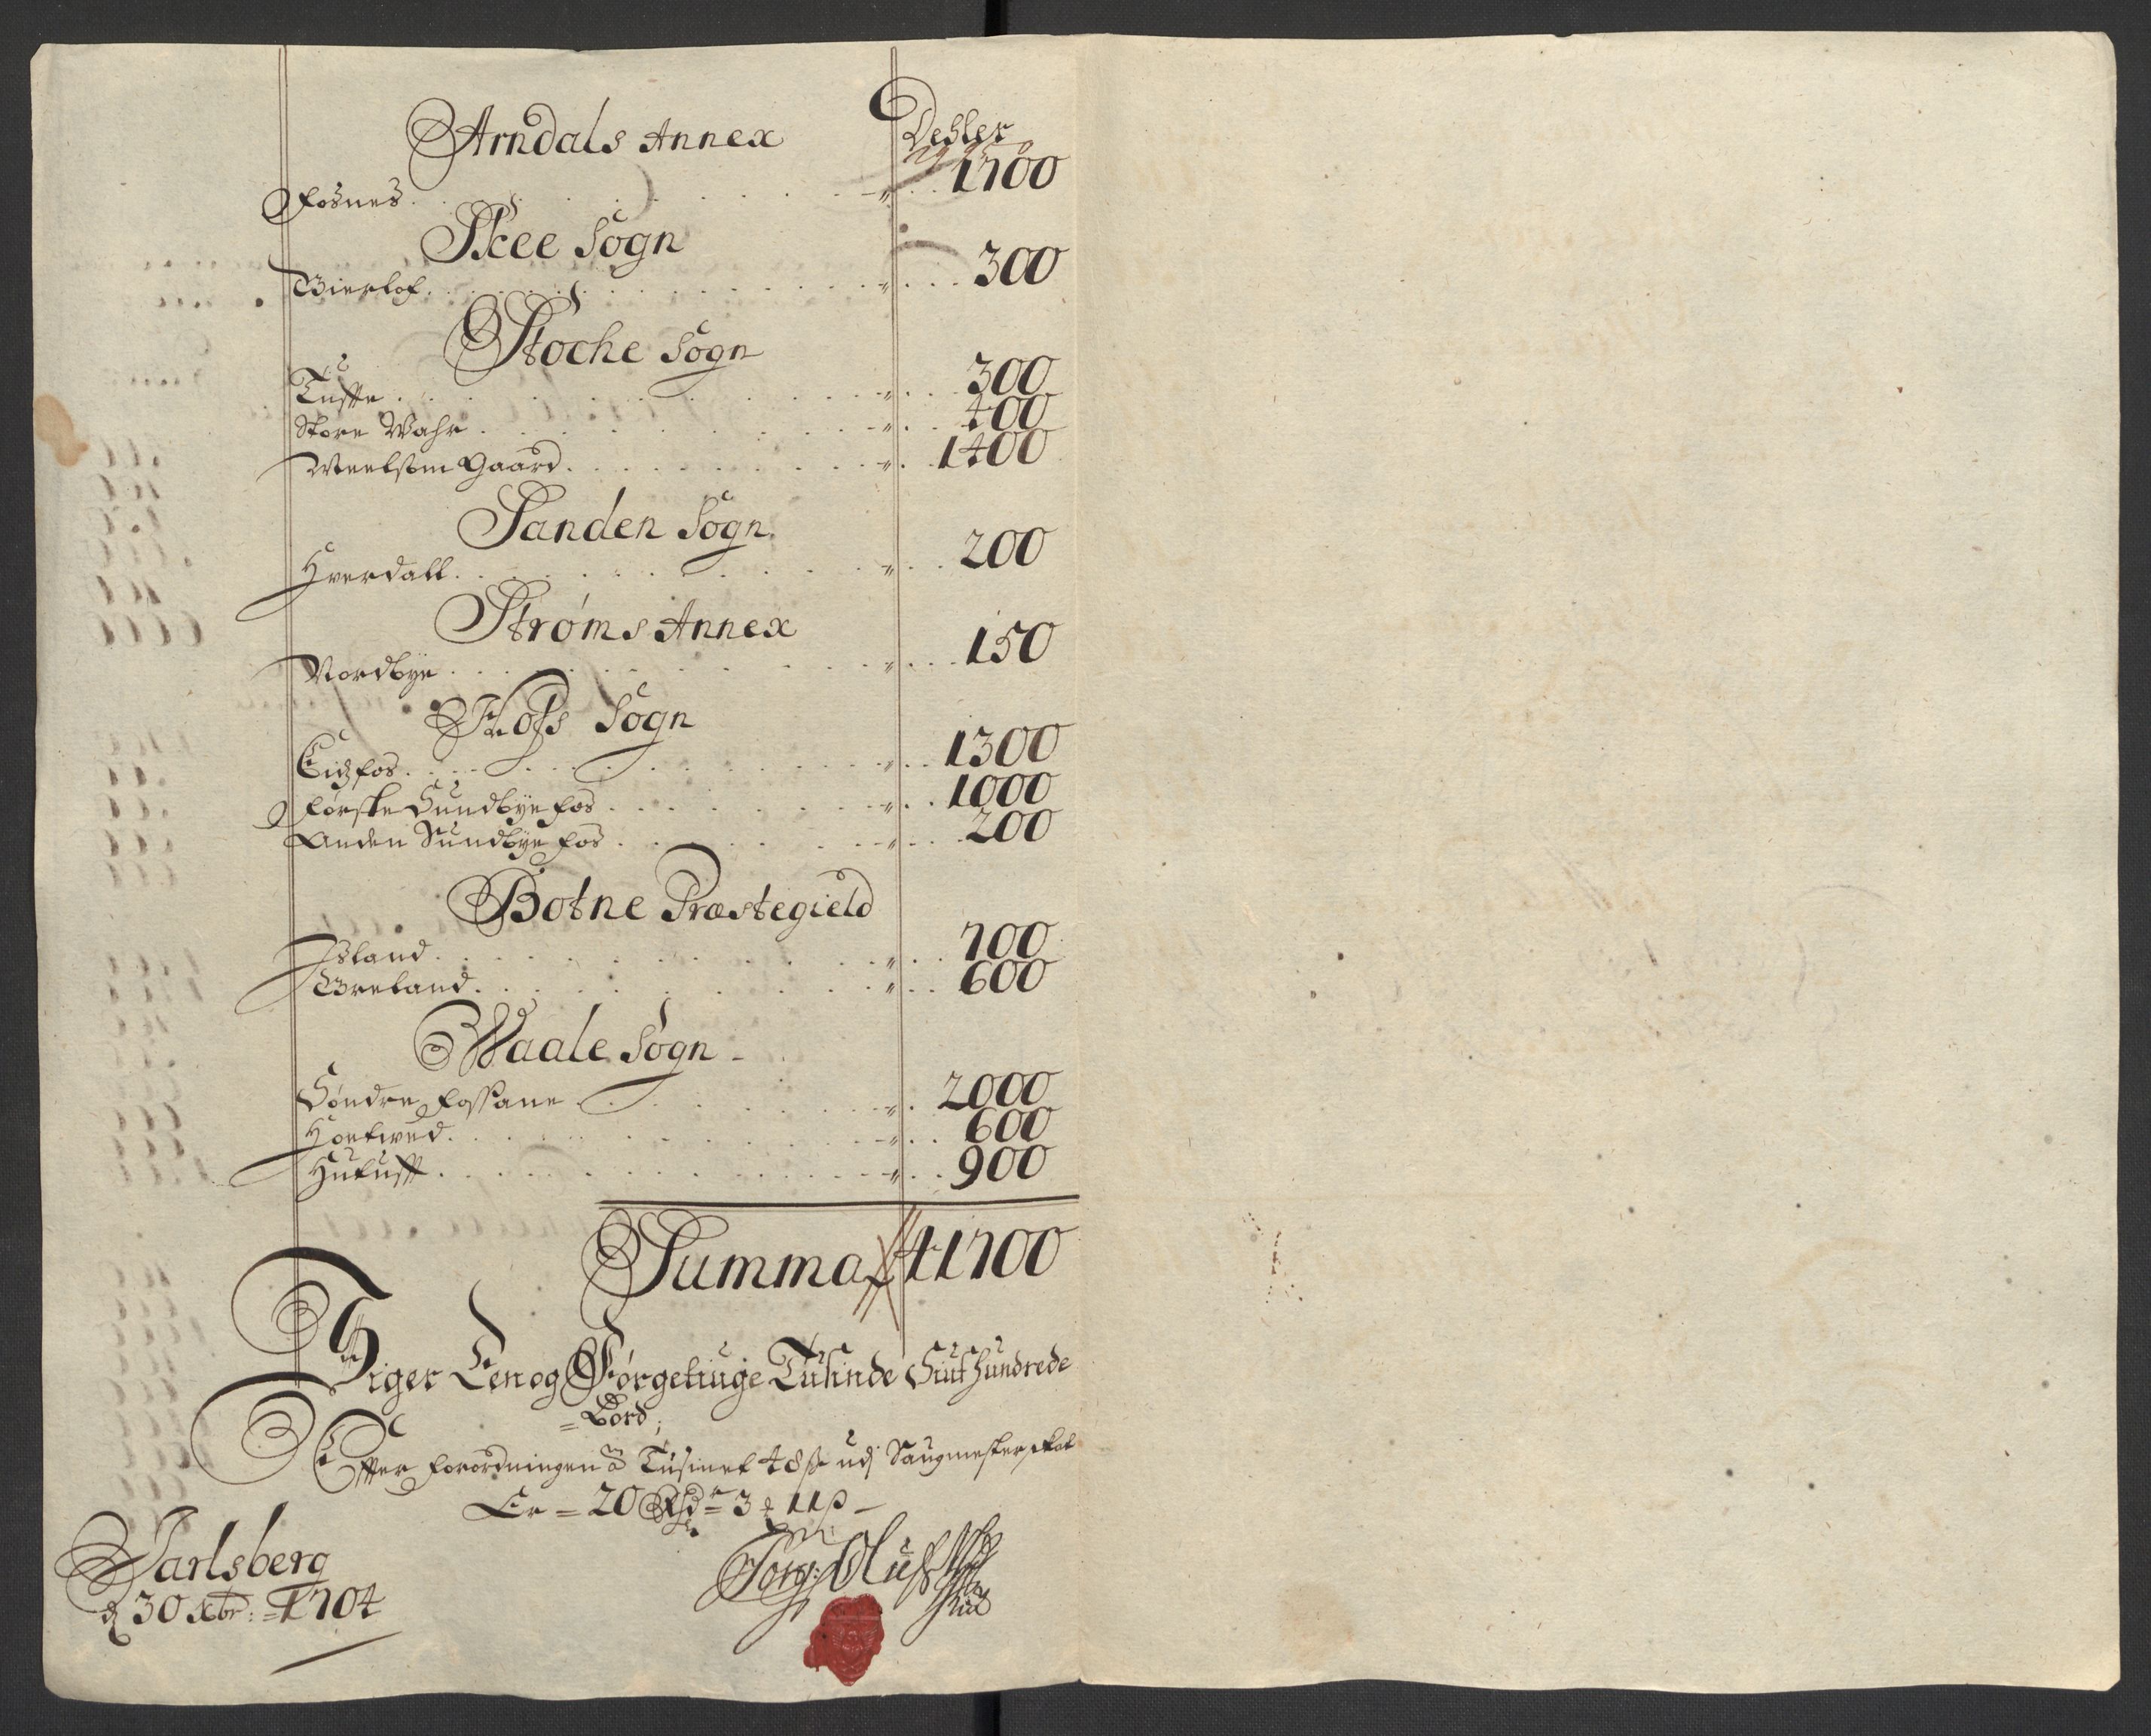 Arndals Annex
Dehler
Fosnes. 1700
Skee Sogn
Bierkof. 300
Stoche Sogn
Tuffte. 300
Store Wahr. 400
Melsom Gaard. 1400
Sanden Sogn.
Hverdall. 200
Strøms Annex
Nordbye. 150
Hofs Sogn
Eidzfos. 1300
Første Sundbye fos. 1000
Anden Sundbye fos. 200
Botne Præstegield
Island. 700
Breland. 600
Waale Sogn
Søndre fossane. 2000
Hoelwed. 600
Hulufft. 900
Summa 41700
Siger Een og Førgetiuge Tusinde Siuf hundrede
= Bord;
Effter forordningen â Tusinet 48 ß udj Saugmester skat
Er = 20 Rhdr = 3 11 ß
Jarlsberg
d 30 Xbr: = 1704